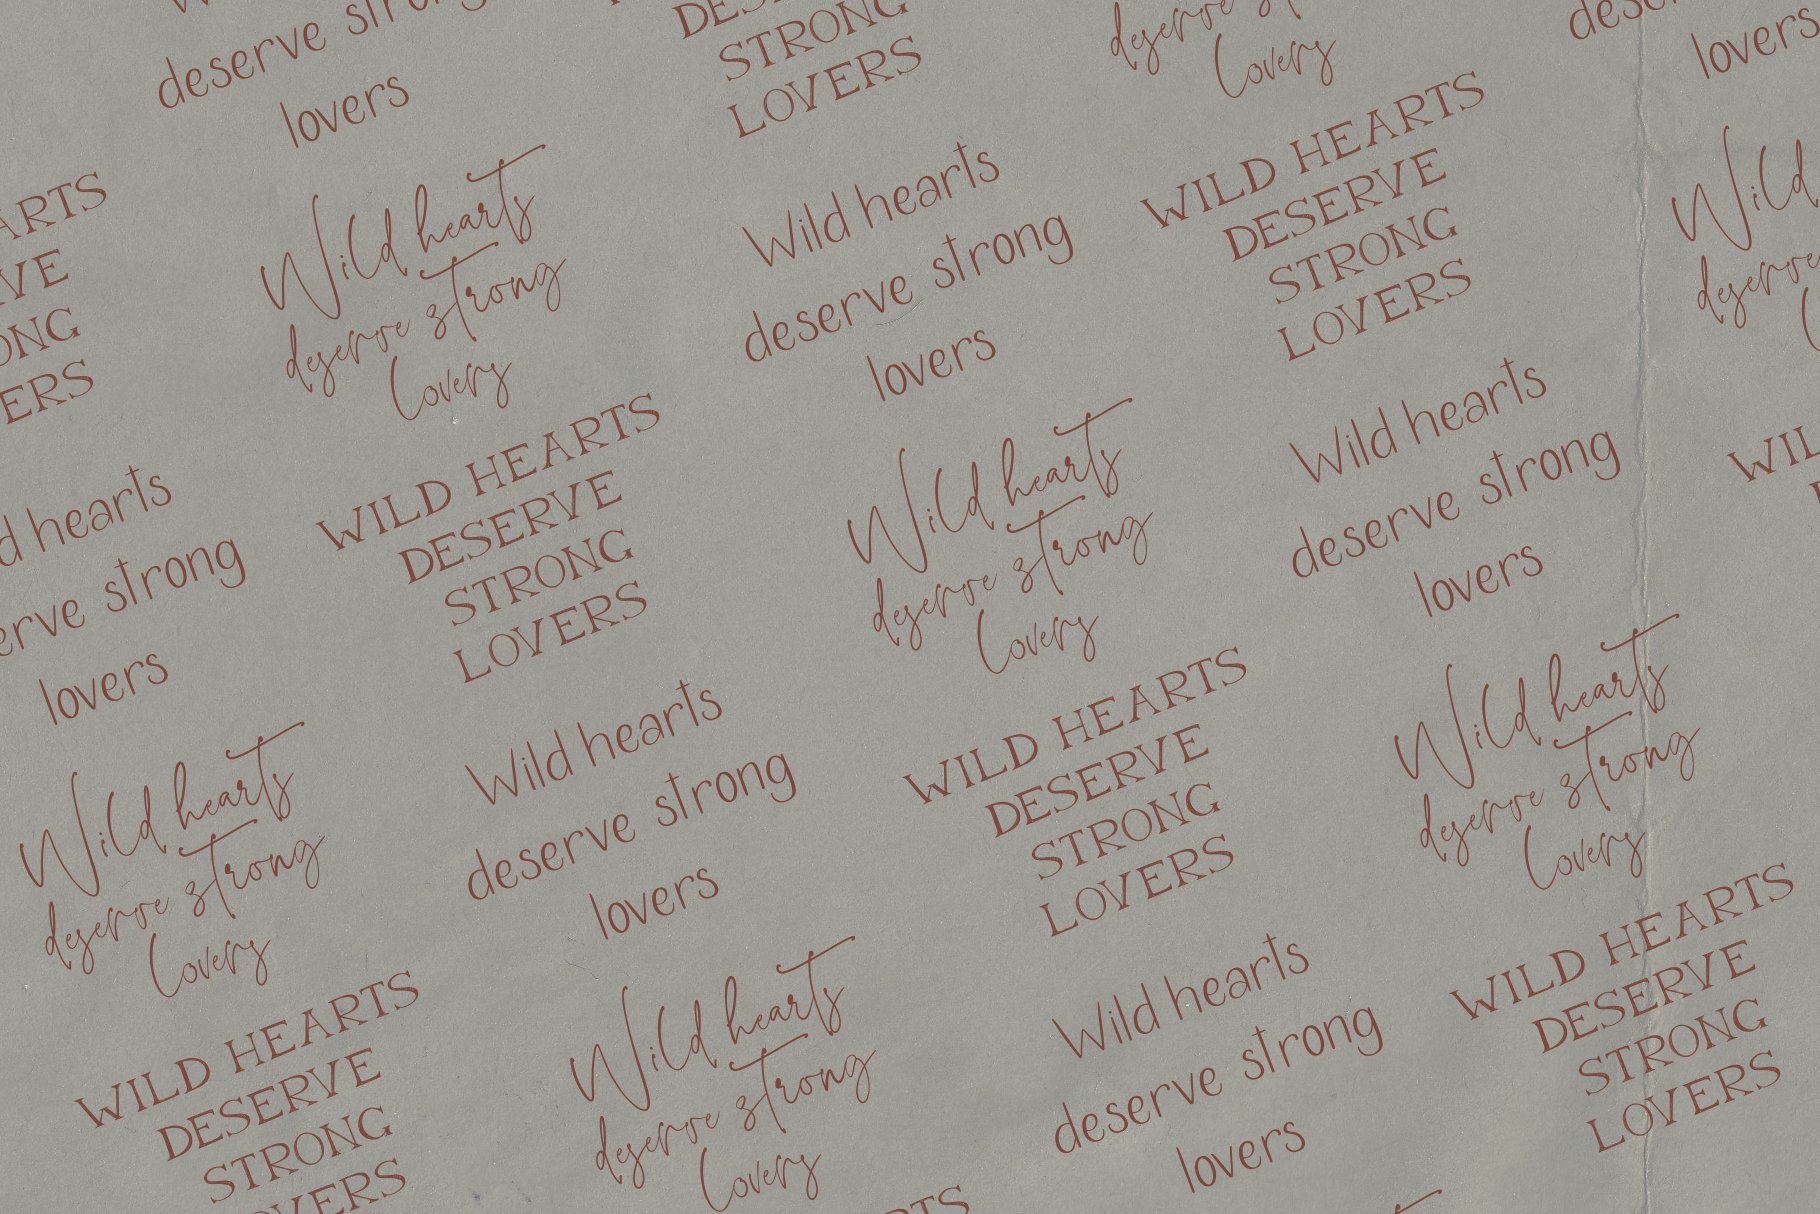 deserve
lovers
Wild hearts
deserve strong
lovers
WILD HEARTS
DESERVE
STRONG
LOVERS
Wild hearts
deserve strong
lovers
Wild hearts
deserve strong
lovers
STRONG
LOVERS
Wild hearts
deserve strong
lovers
Wild hearts
deserve strong
lovers
WILD HEARTS
DESERVE
STRONG
LOVERS
Wild hearts
deserve strong
lovers
deserve
lovers
WILD HEARTS
DESERVE
STRONG
LOVERS
Wild hearts
deserve strong
lovers
Wild hearts
deserve strong
lovers
WILD HEARTS
DESERVE
STRONG
LOVERS
hearts
strong
lovers
Wild hearts
deserve strong
lovers
WILD HEARTS
DESERVE
STRONG
lovers
Wild
deserve